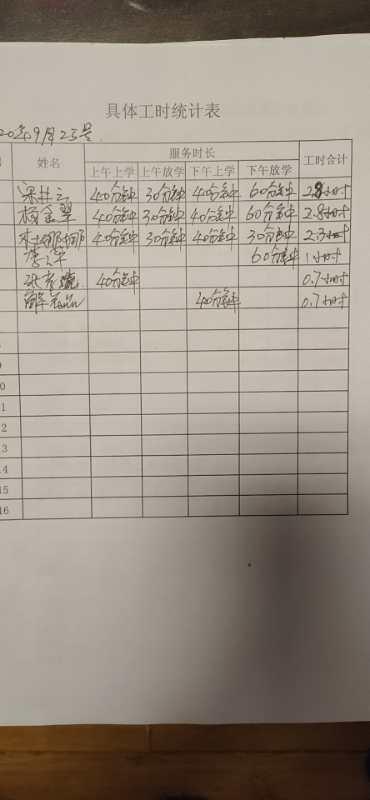 具体工时统计表
20年9月25号
姓名 服务时长 工时合计
上午上学 上午放学 下午上学 下午放学
40分钟 30分钟 40分钟 60分钟 2.8小时
杨金翠 40分钟 30分钟 40分钟 60分钟 2.8小时
娜娜 40分钟 30分钟 40分钟 30分钟 2.3小时
李军 60分钟 1小时
40分钟 0.7小时
40分钟 0.7小时
0
1
2
3
14
15
16